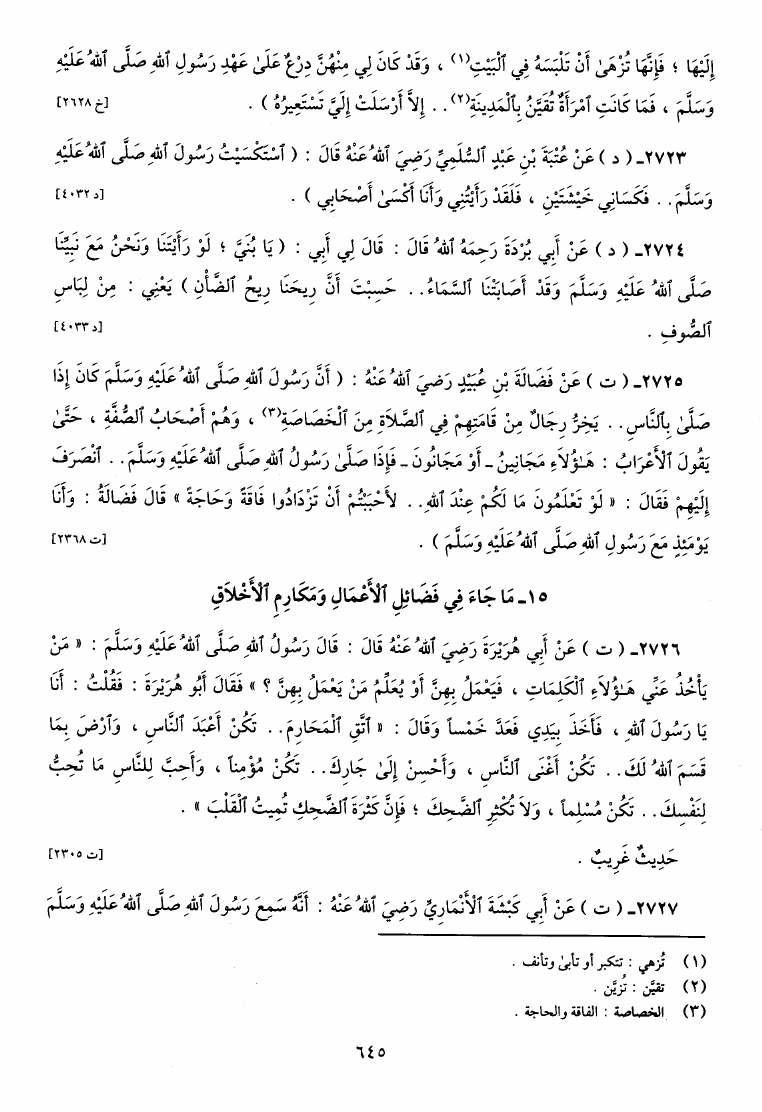 إِلَيْهَا ؛ فَإِنَّهَا تُزْهَىٰ أَنْ تَلْبَسَهُ فِي ٱلْبَيْتِ(١) ، وَقَدْ كَانَ لِي مِنْهُنَّ دِرْعٌ عَلَىٰ عَهْدِ رَسُولِ ٱللهِ صَلَّى ٱللهُ عَلَيْهِ
وَسَلَّمَ ، فَمَا كَانَتِ ٱمْرَأَةٌ تُقَيَّنُ بِٱلْمَدِينَةِ(٢) . . إِلاَّ أَرْسَلَتْ إِلَيَّ تَسْتَعِيرُهُ ) . [خ ٢٦٢٨]
٢٧٢٣ـ ( د ) عَنْ عُتْبَةَ بْنِ عَبْدٍ ٱلسُّلَمِيِّ رَضِيَ ٱللهُ عَنْهُ قَالَ : ( ٱسْتَكْسَيْتُ رَسُولَ ٱللهِ صَلَّى ٱللهُ عَلَيْهِ
وَسَلَّمَ . . فَكَسَانِي خَيْشَتَيْنِ ، فَلَقَدْ رَأَيْتُنِي وَأَنَا أَكْسَىٰ أَصْحَابِي ) . [د ٤٠٣٢]
٢٧٢٤ـ ( د ) عَنْ أَبِي بُرْدَةَ رَحِمَهُ ٱللهُ قَالَ : قَالَ لِي أَبِي : ( يَا بُنَيَّ ؛ لَوْ رَأَيْتَنَا وَنَحْنُ مَعَ نَبِيِّنَا
صَلَّى ٱللهُ عَلَيْهِ وَسَلَّمَ وَقَدْ أَصَابَتْنَا ٱلسَّمَاءُ . . حَسِبْتَ أَنَّ رِيحَنَا رِيحُ ٱلضَّأْنِ ) يَعْنِي : مِنْ لِبَاسِ
ٱلصُّوفِ . [د ٤٠٣٣]
٢٧٢٥ـ ( ت ) عَنْ فَضَالَةَ بْنِ عُبَيْدٍ رَضِيَ ٱللهُ عَنْهُ : ( أَنَّ رَسُولَ ٱللهِ صَلَّى ٱللهُ عَلَيْهِ وَسَلَّمَ كَانَ إِذَا
صَلَّىٰ بِٱلنَّاسِ . . يَخِرُّ رِجَالٌ مِنْ قَامَتِهِمْ فِي ٱلصَّلاَةِ مِنَ ٱلْخَصَاصَةِ(٣) ، وَهُمْ أَصْحَابُ ٱلصُّفَّةِ ، حَتَّىٰ
يَقُولَ ٱلْأَعْرَابُ : هَـٰؤُلاَءِ مَجَانِينُ ـ أَوْ مَجَانُونَ ـ فَإِذَا صَلَّىٰ رَسُولُ ٱللهِ صَلَّى ٱللهُ عَلَيْهِ وَسَلَّمَ . . ٱنْصَرَفَ
إِلَيْهِمْ فَقَالَ : « لَوْ تَعْلَمُونَ مَا لَكُمْ عِنْدَ ٱللهِ . . لأَحْبَبْتُمْ أَنْ تَزْدَادُوا فَاقَةً وَحَاجَةً » قَالَ فَضَالَةُ : وَأَنَا
يَوْمَئِذٍ مَعَ رَسُولِ ٱللهِ صَلَّى ٱللهُ عَلَيْهِ وَسَلَّمَ ) . [ت ٢٣٦٨]
١٥ـ مَا جَاءَ فِي فَضَائِلِ ٱلْأَعْمَالِ وَمَكَارِمِ ٱلْأَخْلاَقِ
٢٧٢٦ـ ( ت ) عَنْ أَبِي هُرَيْرَةَ رَضِيَ ٱللهُ عَنْهُ قَالَ : قَالَ رَسُولُ ٱللهِ صَلَّى ٱللهُ عَلَيْهِ وَسَلَّمَ : « مَنْ
يَأْخُذُ عَنِّي هَـٰؤُلاَءِ ٱلْكَلِمَاتِ ، فَيَعْمَلُ بِهِنَّ أَوْ يُعَلِّمُ مَنْ يَعْمَلُ بِهِنَّ ؟ » فَقَالَ أَبُو هُرَيْرَةَ : فَقُلْتُ : أَنَا
يَا رَسُولَ ٱللهِ ، فَأَخَذَ بِيَدِي فَعَدَّ خَمْساً وَقَالَ : « ٱتَّقِ ٱلْمَحَارِمَ . . تَكُنْ أَعْبَدَ ٱلنَّاسِ ، وَٱرْضَ بِمَا
قَسَمَ ٱللهُ لَكَ . . تَكُنْ أَغْنَى ٱلنَّاسِ ، وَأَحْسِنْ إِلَىٰ جَارِكَ . . تَكُنْ مُؤْمِناً ، وَأَحِبَّ لِلنَّاسِ مَا تُحِبُّ
لِنَفْسِكَ . . تَكُنْ مُسْلِماً ، وَلاَ تُكْثِرِ ٱلضَّحِكَ ؛ فَإِنَّ كَثْرَةَ ٱلضَّحِكِ تُمِيتُ ٱلْقَلْبَ » .
حَدِيثٌ غَرِيبٌ . [ت ٢٣٠٥]
٢٧٢٧ـ ( ت ) عَنْ أَبِي كَبْشَةَ ٱلْأَنْمَارِيِّ رَضِيَ ٱللهُ عَنْهُ : أَنَّهُ سَمِعَ رَسُولَ ٱللهِ صَلَّى ٱللهُ عَلَيْهِ وَسَلَّمَ
(١) تُزهي : تتكبر أو تأبىٰ وتأنف .
(٢) تقيَّن : تُزيَّن .
(٣) الخصاصة : الفاقة والحاجة .
٦٤٥